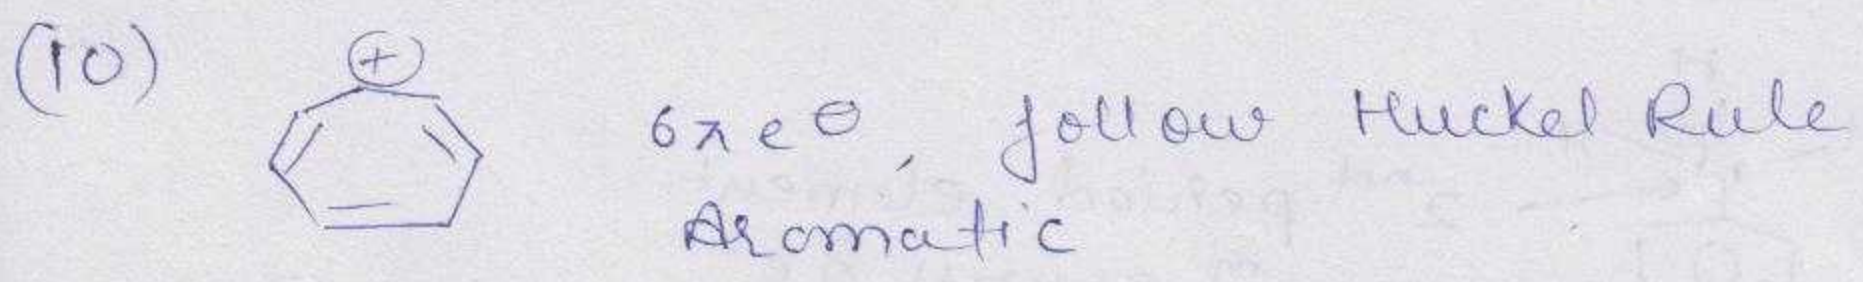 (10) ⊕ 6πe⊖, follow Huckel Rule
Aromatic